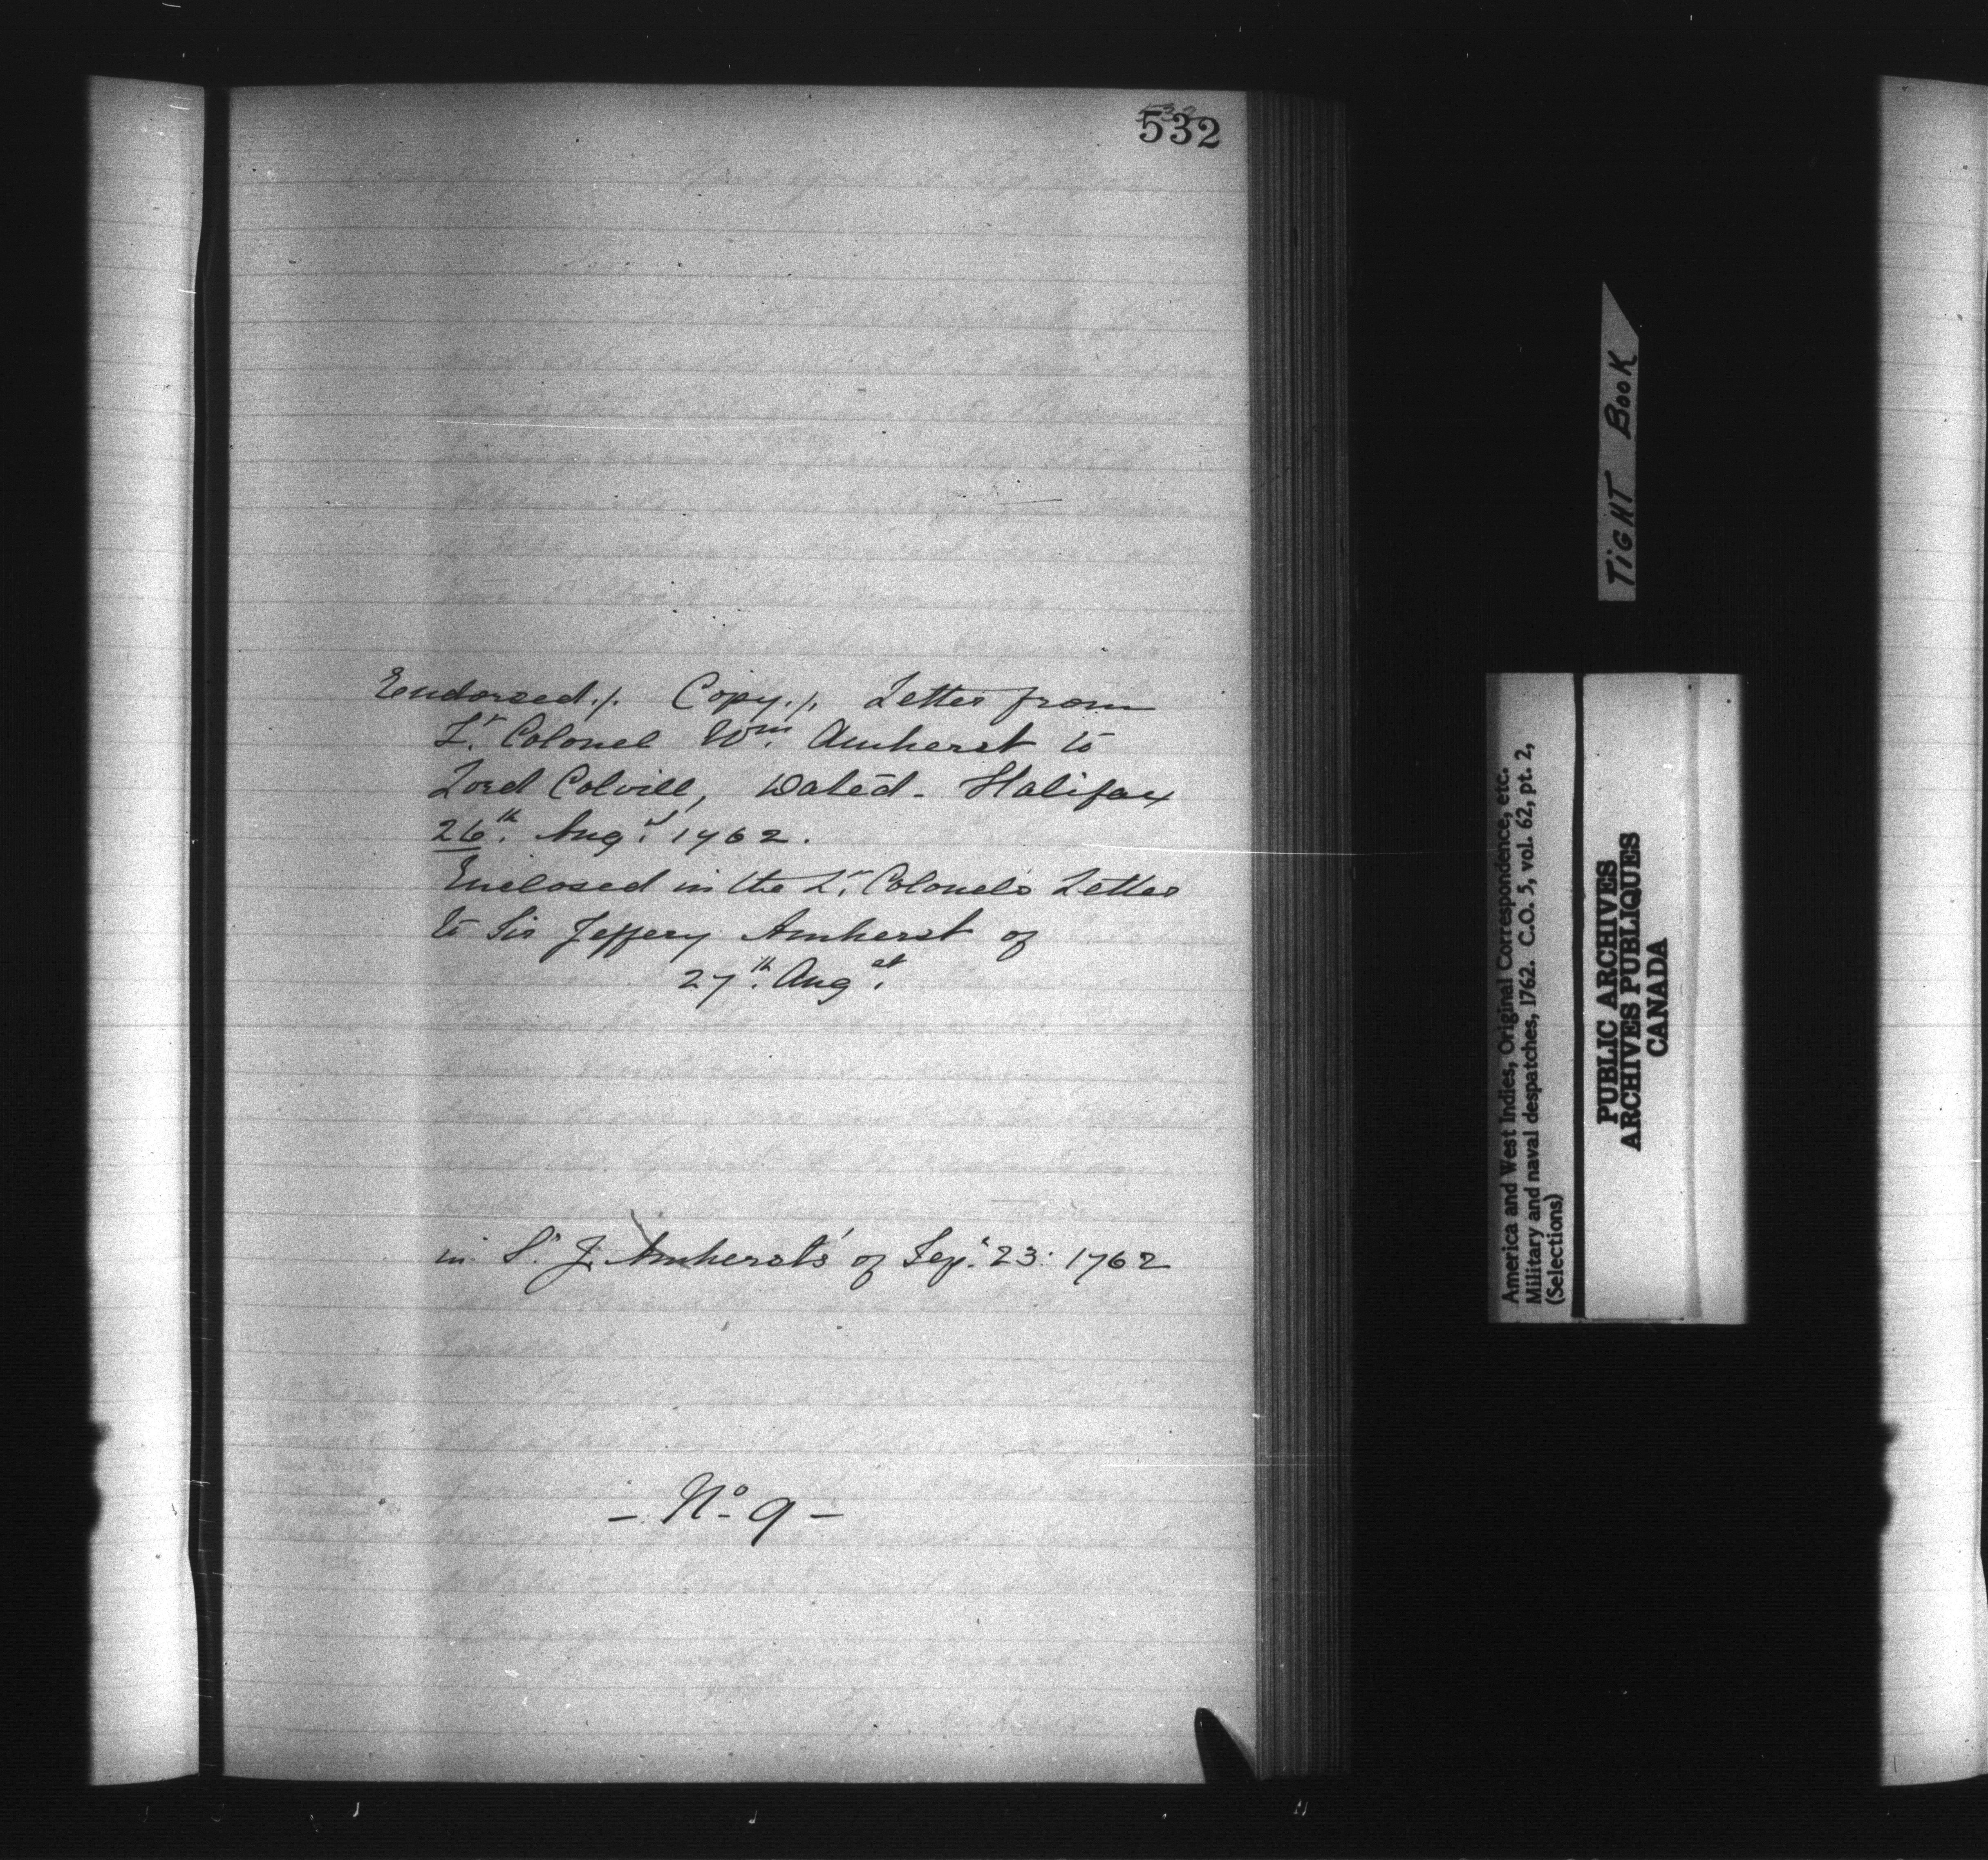 532
532
Endorsed./. Copy./. Letter from
Lt. Colonel Wm. Amherst to
Lord Colvill, Dated - Halifax
26th. Augt. 1762.
Enclosed in the Lt. Colonel's Letter
to Sir Jeffery Amherst of
27th. Augst.
in Sr. J. Amherst's of Sepr. 23: 1762
- No. 9 -
TIGHT BOOK
America and West Indies, Original Correspondence, etc.
Military and naval despatches, 1762. C.O. 5, vol. 62, pt. 2,
(Selections)
PUBLIC ARCHIVES
ARCHIVES PUBLIQUES
CANADA